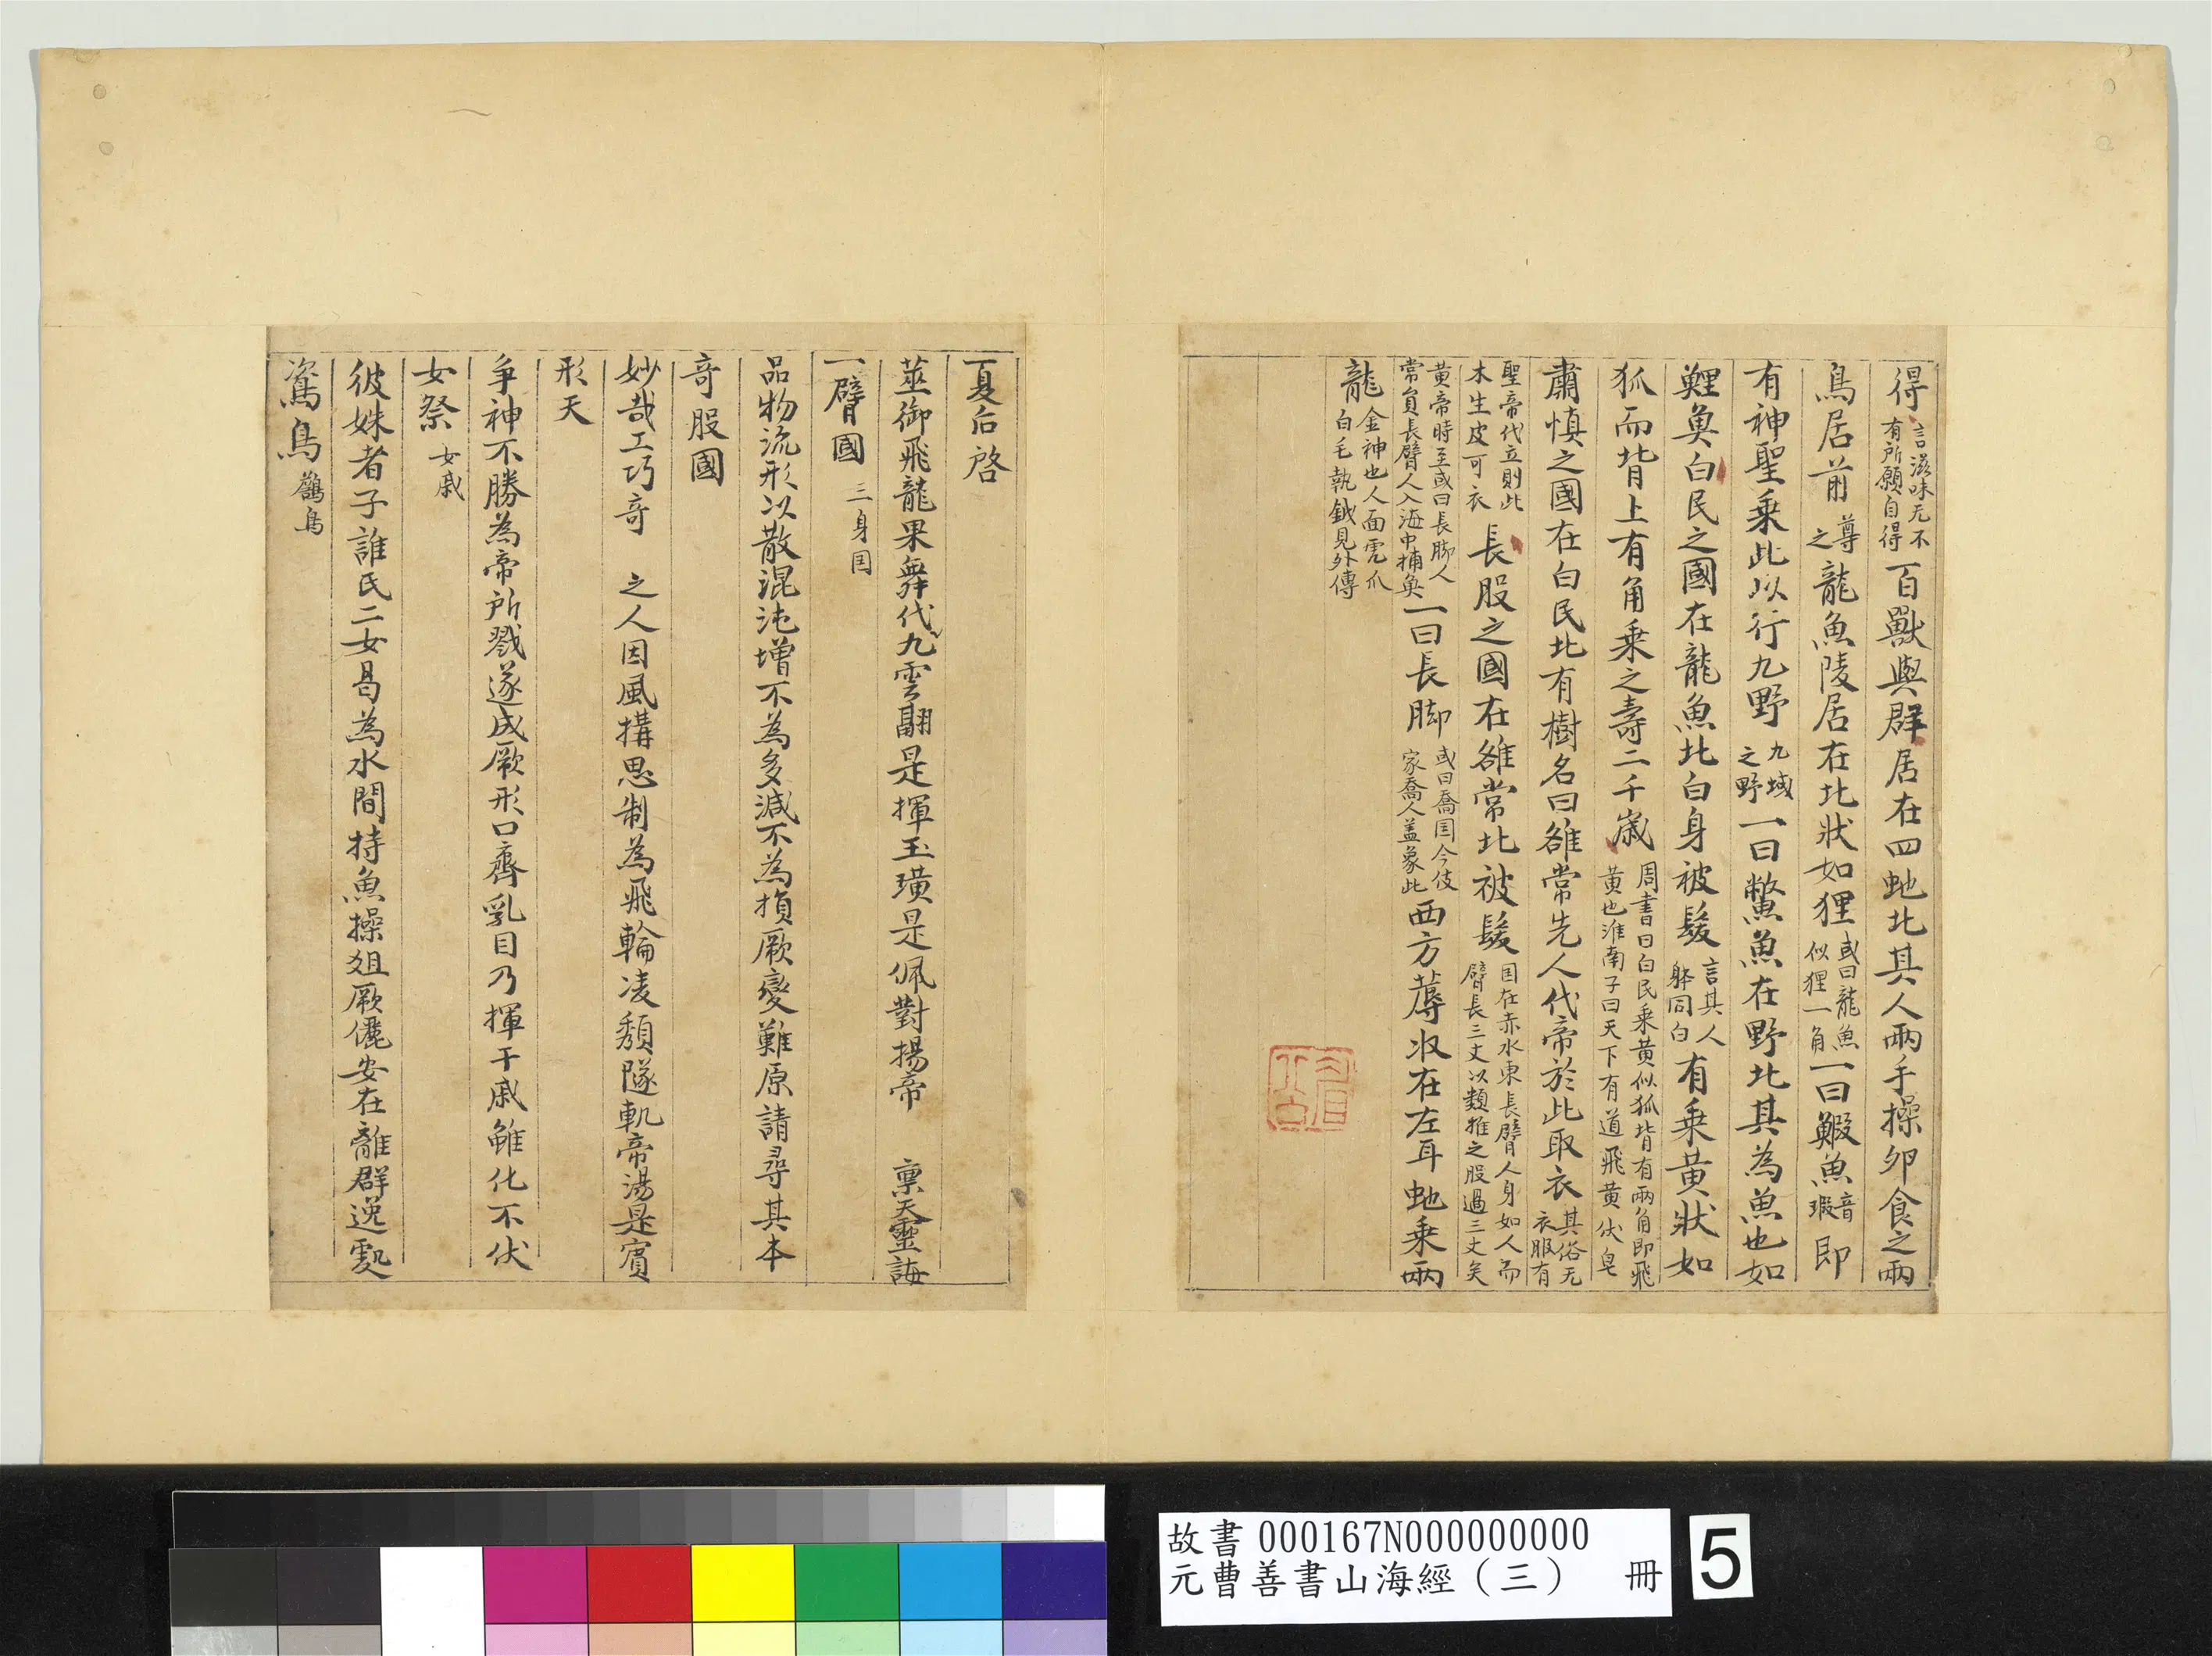 得言滋味无不有所願自得百獸與群居在四虵北其人兩手操卵食之兩
鳥居前尊之龍魚陵居在北狀如狸或曰龍魚似狸一角一曰鰕魚音瑕即
有神聖乘此以行九野九域之野一曰鱉魚在野北其為魚也如
鯉奐白民之國在龍魚北白身被髮言其人躰同白有乘黃狀如
狐而背上有角乘之壽二千歲周書曰白民乘黃似狐背有兩角即飛黃也淮南子曰天下有道飛黃伏皂
肅慎之國在白民北有樹名曰雒常先人代帝於此取衣其俗无衣服有
聖帝代立則此木生皮可衣長股之國在雒常北被髮国在赤水東長臂人身如人而臂長三丈以類推之股過三丈矣
黃帝時至或曰長脚人常負長臂人入海中捕奐一曰長脚或曰喬国今伎家喬人盖象此西方蓐收在左耳虵乘兩
龍金神也人面虎爪白毛執鉞見外傳
夏后啓
莁御飛龍果舞代九雲翮是揮玉璜是佩對揚帝 稟天靈誨
一臂國三身国
品物流形以散混沌增不為多減不為損厥變難原請尋其本
奇股國
妙哉工巧奇 之人因風搆思制為飛輪凌頹隧軌帝湯是賓
形天
爭神不勝為帝所戮遂成厥形口齊乳目乃揮干戚雖化不伏
女祭女戚
彼姝者子誰氏二女曷為水間持魚操俎厥儷安在離群逸䖏
鴜鳥鶬鳥
故書 000167N000000000
元曹善書山海經（三） 冊
5